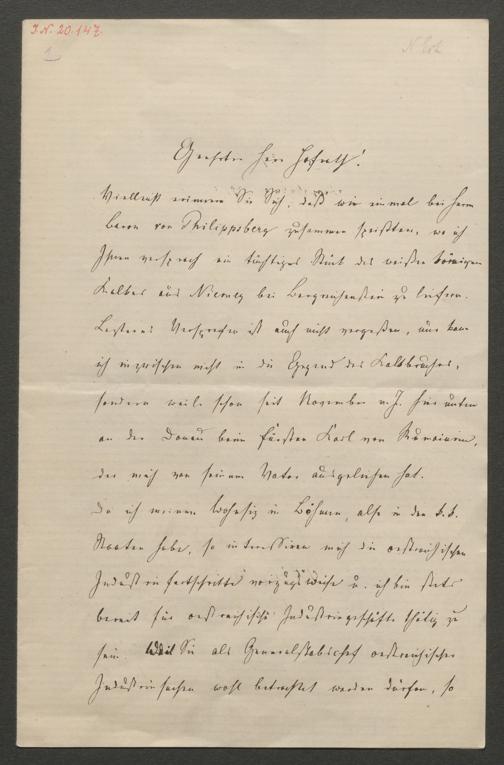 J.N. 20.147.
1
Geehrter Herr Hofrath!
Vielleicht erinnern Sie Sich, daß wir einmal bei Herrn
Baron von Philippsberg zusammen speisten, wo ich
Ihnen versprach ein tüchtiges Stück des weißen körnigen
Kalkes aus bei Bergreichenstein zu liefern.
Letzteres Versprechen ist auch nicht vergessen, nur kam
ich inzwischen nicht in die Gegend des Kalkbruches,
sondern weile schon seit November v. J. hier unten
an der Donau beim Fürsten Karl von Rumänien,
der mich von seinem Vater ausgeliehen hat.
Da ich meinen Wohnsitz in Böhmen, also in den k.k.
Staaten habe, so interessiren mich die oestreichischen
Industriefortschritte vorzugsweise u. ich bin stets
bereit für oestreichische Industriegeschäfte thätig zu
sein. Weil Sie als Generalstabschef oestreichischer
Industriesachen wohl betrachtet werden dürfen, so